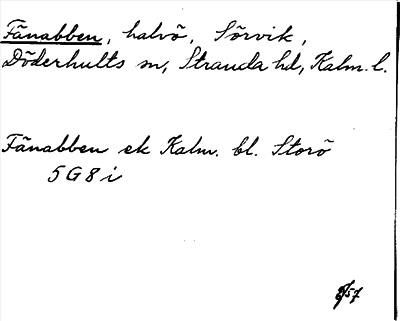 Fänabben, halvö, Sörvik,
Döderhults sn, Stranda hd, Kalm. l.
Fänabben ek Kalm. bl. Storö
5G8i